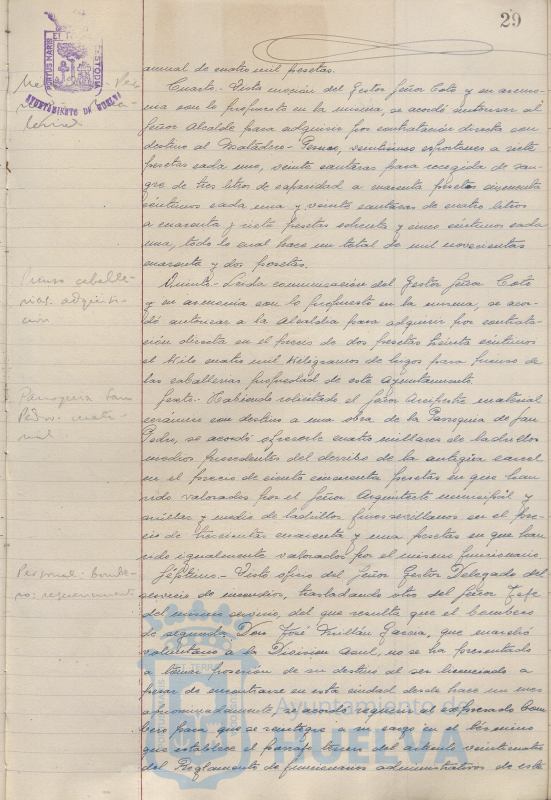 29
PORTUS MARIS ET TERRAE CUSTODIA
AYUNTAMIENTO DE HUELVA
anual de cuatro mil pesetas.
Cuarto.- Vista moción del Gestor Señor Coto y en armo-
nía con lo propuesto en la misma, se acordó autorizar al
Señor Alcalde para adquirir por contratación directa con
destino al Matadero-Pescue, veintiunos esportones a siete
pesetas cada uno, veinte cantaras para recogida de san-
gre de tres litros de capacidad a cuarenta pesetas cincuenta
céntimos cada una y veinte cantaras de cuatro litros
a cuarenta y siete pesetas setenta y cinco céntimos cada
una, todo lo cual hace un total de mil novecientas
cuarenta y dos pesetas.
Pienso caballe-
rías: adquisi-
ción
Quinto.- Leída comunicación del Gestor Señor Coto
y en armonía con lo propuesto en la misma, se acor-
dó autorizar a la Alcaldía para adquirir por contrata-
ción directa en el precio de dos pesetas treinta céntimos
el kilo cuatro mil kilogramos de higos para pienso de
las caballerías propiedad de este Ayuntamiento.
Parroquia San
Pedro: mate-
rial
Sexto.- Habiendo solicitado el Señor Arcipreste material
cerámico con destino a una obra de la Parroquia de San
Pedro, se acordó ofrecerle cuatro millares de ladrillos
medios procedentes del derribo de la antigua carcel
en el precio de ciento cincuenta pesetas en que han
sido valorados por el Señor Arquitecto municipal y
millar y medio de ladrillos finos sevillanos en el pre-
cio de trescientas cuarenta y una pesetas en que han
sido igualmente valorados por el mismo funcionario.
Personal: bombe-
ro: requerimiento
Séptimo.- Visto oficio del Señor Gestor Delegado del
servicio de incendios, trasladando otro del Señor Jefe
del mismo servicio, del que resulta que el bombero
de segunda Don José Millán García, que marchó
voluntario a la División Azul, no se ha presentado
a tomar posesion de su destino al ser licenciado a
pesar de encontrarse en esta ciudad desde hace un mes
aproximadamente, se acordó requerir al expresado bom-
bero para que se reintegre a su cargo en el término
que establece el párrafo tercero del artículo veinticuatro
del Reglamento de funcionarios administrativos de este
Ayuntamiento de
HUELVA